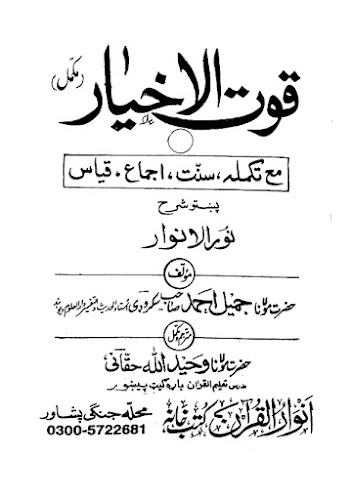 قوت الاخیار (مکمل)
مع تکملہ، سنّت، اجماع، قیاس
پښتو شرح
نور الانوار
مؤلف
حضرت مولانا جمیل احمد صاحب سکروڈی استاذ الحدیث والتفسیر دارالعلوم دیوبند
مترجم مکمل
حضرت مولانا وحید اللہ حقانی
مدرس تعلیم القرآن باڑہ گیٹ پیښور
انوار القرآن کتب خانہ
محلہ جنگی پشاور
0300-5722681